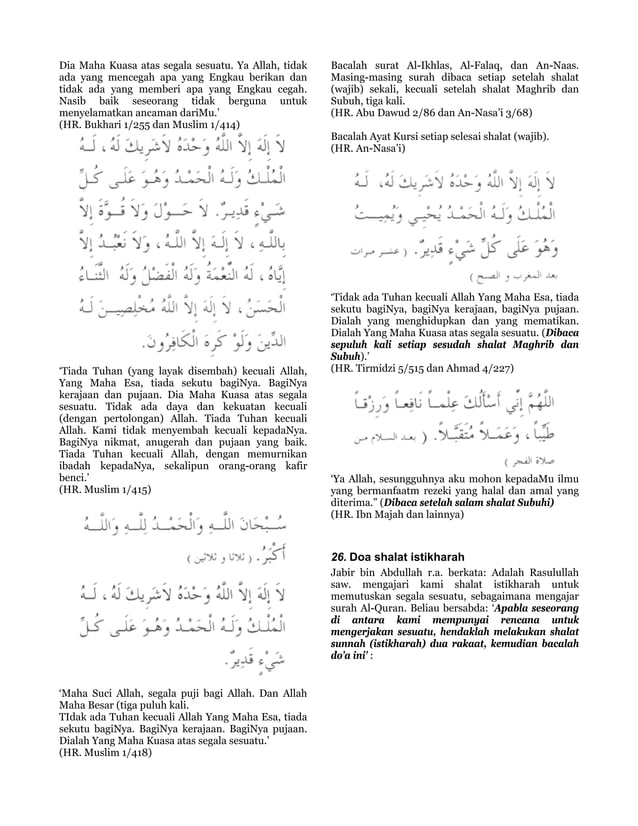 Dia Maha Kuasa atas segala sesuatu. Ya Allah, tidak
ada yang mencegah apa yang Engkau berikan dan
tidak ada yang memberi apa yang Engkau cegah.
Nasib baik seseorang tidak berguna untuk
menyelamatkan ancaman dariMu.’
(HR. Bukhari 1/255 dan Muslim 1/414)
لاَ إِلَهَ إِلاَّ اللَّهُ وَحْدَهُ لاَشَرِيكَ لَهُ، لَـهُ
الْمُلْـكُ وَلَـهُ الْحَمْـدُ وَهُـوَ عَلَـى كُـلِّ
شَـيْءٍ قَدِيـرٌ. لاَ حَـوْلَ وَلاَ قُـوَّةَ إِلاَّ
بِاللَّـهِ، لاَ إِلَـهَ إِلاَّ اللَّـهُ، وَلاَ نَعْبُـدُ إِلاَّ
إِيَّاهُ، لَهُ النِّعْمَةُ وَلَهُ الْفَضْلُ وَلَهُ الثَّنَـاءُ
الْحَسَنُ، لاَ إِلَهَ إِلاَّ اللَّهُ مُخْلِصِيـنَ لَـهُ
الدِّينَ وَلَوْ كَرِهَ الْكَافِرُونَ.
‘Tiada Tuhan (yang layak disembah) kecuali Allah,
Yang Maha Esa, tiada sekutu bagiNya. BagiNya
kerajaan dan pujaan. Dia Maha Kuasa atas segala
sesuatu. Tidak ada daya dan kekuatan kecuali
(dengan pertolongan) Allah. Tiada Tuhan kecuali
Allah. Kami tidak menyembah kecuali kepadaNya.
BagiNya nikmat, anugerah dan pujaan yang baik.
Tiada Tuhan kecuali Allah, dengan memurnikan
ibadah kepadaNya, sekalipun orang-orang kafir
benci.’
(HR. Muslim 1/415)
سُـبْحَانَ اللَّـهِ وَالْحَمْـدُ لِلَّـهِ وَاللَّـهُ
أَكْبَرُ. (ثلاثا و ثلاثين)
لاَ إِلَهَ إِلاَّ اللَّهُ وَحْدَهُ لاَشَرِيكَ لَهُ، لَـهُ
الْمُلْـكُ وَلَـهُ الْحَمْـدُ وَهُـوَ عَلَـى كُـلِّ
شَيْءٍ قَدِيرٌ.
‘Maha Suci Allah, segala puji bagi Allah. Dan Allah
Maha Besar (tiga puluh kali.
TIdak ada Tuhan kecuali Allah Yang Maha Esa, tiada
sekutu bagiNya. BagiNya kerajaan. BagiNya pujaan.
Dialah Yang Maha Kuasa atas segala sesuatu.’
(HR. Muslim 1/418)
Bacalah surat Al-Ikhlas, Al-Falaq, dan An-Naas.
Masing-masing surah dibaca setiap setelah shalat
(wajib) sekali, kecuali setelah shalat Maghrib dan
Subuh, tiga kali.
(HR. Abu Dawud 2/86 dan An-Nasa’i 3/68)
Bacalah Ayat Kursi setiap selesai shalat (wajib).
(HR. An-Nasa’i)
لاَ إِلَهَ إِلاَّ اللَّهُ وَحْدَهُ لاَشَرِيكَ لَهُ، لَـهُ
الْمُلْـكُ وَلَـهُ الْحَمْـدُ يُحْيِـي وَيُمِيـتُ
وَهُوَ عَلَى كُلِّ شَيْءٍ قَدِيرٌ. (عشـر مـرات
بعد المغرب و الصبح)
‘Tidak ada Tuhan kecuali Allah Yang Maha Esa, tiada
sekutu bagiNya, bagiNya kerajaan, bagiNya pujaan.
Dialah yang menghidupkan dan yang mematikan.
Dialah Yang Maha Kuasa atas segala sesuatu. (Dibaca
sepuluh kali setiap sesudah shalat Maghrib dan
Subuh).’
(HR. Tirmidzi 5/515 dan Ahmad 4/227)
اللَّهُمَّ إِنِّي أَسْأَلُكَ عِلْمـاً نَافِعـاً وَرِزْقـاً
طَيِّباً، وَعَمَـلاً مُتَقَبَّـلاً. (بعـد السـلام مـن
صلاة الفجر)
‘Ya Allah, sesungguhnya aku mohon kepadaMu ilmu
yang bermanfaatm rezeki yang halal dan amal yang
diterima.” (Dibaca setelah salam shalat Subuhi)
(HR. Ibn Majah dan lainnya)
26. Doa shalat istikharah
Jabir bin Abdullah r.a. berkata: Adalah Rasulullah
saw. mengajari kami shalat istikharah untuk
memutuskan segala sesuatu, sebagaimana mengajar
surah Al-Quran. Beliau bersabda: ‘Apabla seseorang
di antara kami mempunyai rencana untuk
mengerjakan sesuatu, hendaklah melakukan shalat
sunnah (istikharah) dua rakaat, kemudian bacalah
do’a ini’ :